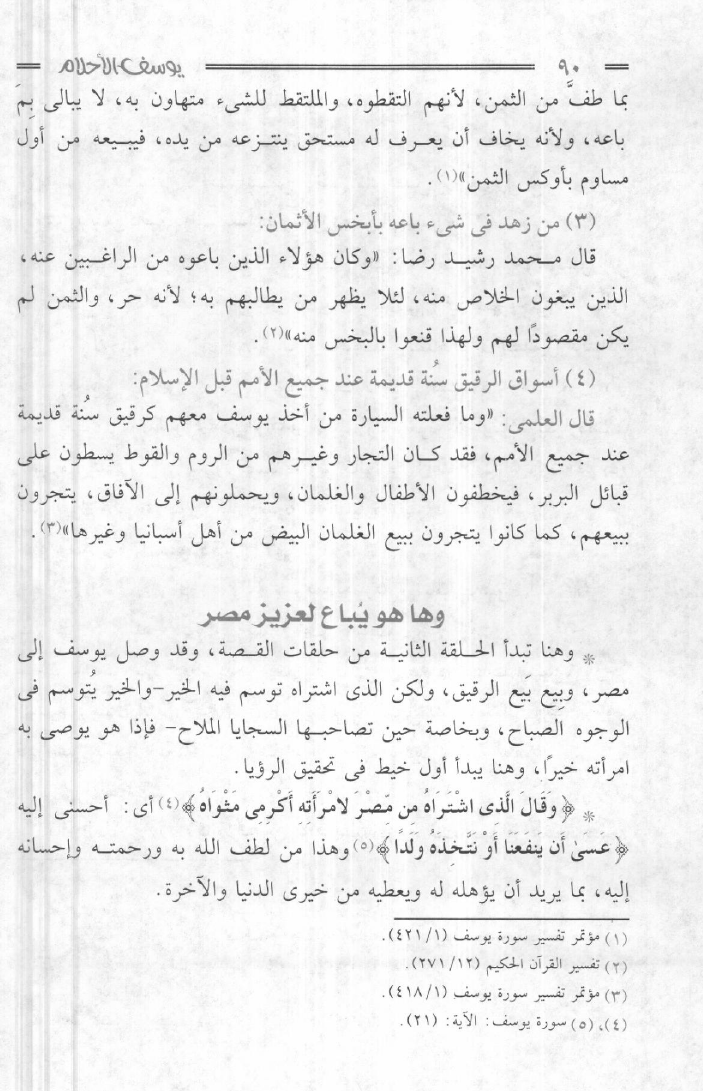 ٩٠ يوسف الأحلام
بما طفَّ من الثمن، لأنهم التقطوه، والملتقط للشىء متهاون به، لا يبالى بِمَ
باعه، ولأنه يخاف أن يعرف له مستحق ينتزعه من يده، فيبيعه من أول
مساوم بأوكس الثمن»(١).
(٣) من زهد فى شىء باعه بأبخس الأثمان:
قال محمد رشيد رضا: «وكان هؤلاء الذين باعوه من الراغبين عنه،
الذين يبغون الخلاص منه، لئلا يظهر من يطالبهم به؛ لأنه حر، والثمن لم
يكن مقصودًا لهم ولهذا قنعوا بالبخس منه»(٢).
(٤) أسواق الرقيق سُنة قديمة عند جميع الأمم قبل الإسلام:
قال العلمى: «وما فعلته السيارة من أخذ يوسف معهم كرقيق سُنة قديمة
عند جميع الأمم، فقد كان التجار وغيرهم من الروم والقوط يسطون على
قبائل البربر، فيخطفون الأطفال والغلمان، ويحملونهم إلى الآفاق، يتجرون
ببيعهم، كما كانوا يتجرون ببيع الغلمان البيض من أهل أسبانيا وغيرها»(٣).
وها هو يُباع لعزيز مصر
* وهنا تبدأ الحلقة الثانية من حلقات القصة، وقد وصل يوسف إلى
مصر، وبيع بَيع الرقيق، ولكن الذى اشتراه توسم فيه الخير-والخير يُتوسم فى
الوجوه الصباح، وبخاصة حين تصاحبها السجايا الملاح- فإذا هو يوصى به
امرأته خيرًا، وهنا يبدأ أول خيط فى تحقيق الرؤيا.
* ﴿وَقَالَ الَّذِى اشْتَرَاهُ مِن مِّصْرَ لامْرَأَتِهِ أَكْرِمِى مَثْوَاهُ﴾(٤) أى: أحسنى إليه
﴿عَسَىٰ أَن يَنفَعَنَا أَوْ نَتَّخِذَهُ وَلَدًا﴾(٥) وهذا من لطف الله به ورحمته وإحسانه
إليه، بما يريد أن يؤهله له ويعطيه من خيرى الدنيا والآخرة.
(١) مؤتمر تفسير سورة يوسف (٤٢١/١).
(٢) تفسير القرآن الحكيم (٢٧١/١٢).
(٣) مؤتمر تفسير سورة يوسف (٤١٨/١).
(٤)، (٥) سورة يوسف: الآية: (٢١).